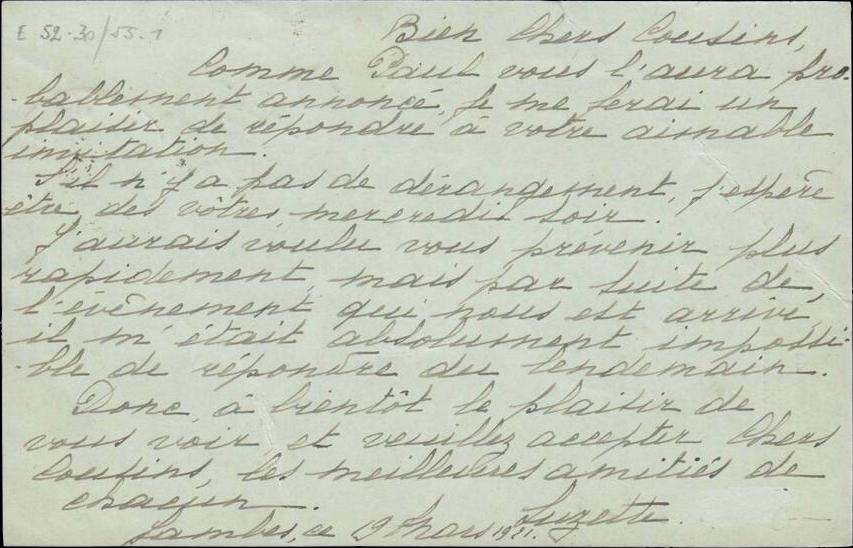 E 52-30/55-1
Bien Chers Cousins,
Comme Paul vous l'aura pro-
-bablement annoncé, je me ferai un
plaisir de répondre à votre aimable
invitation.
S'il n'y a pas de dérangement, j'espère
être des vôtres mercredi soir.
J'aurais voulu vous prévenir plus
rapidement, mais par suite de
l'évènement qui nous est arrivé,
il m'était absolument impossi-
-ble de répondre du lendemain.
Donc, à bientôt le plaisir de
vous voir, et veuillez accepter Chers
Cousins, les meilleures amitiés de
chacun.
Jambes, ce 19 Mars 1921. Suzette.